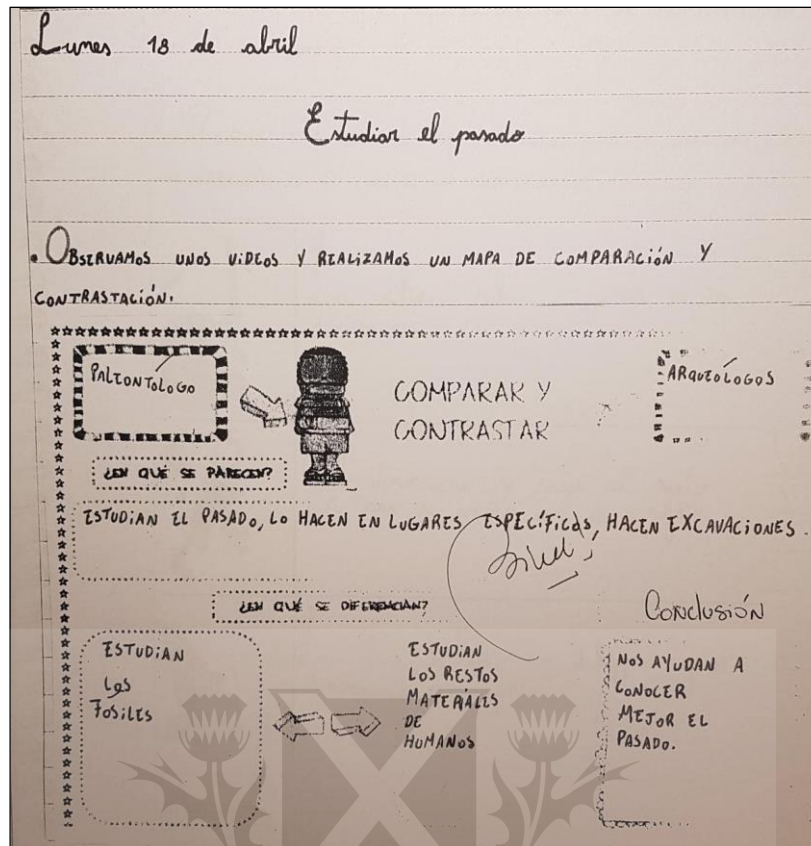 Lunes 18 de abril
Estudiar el pasado
. OBSERVAMOS UNOS ViDEOS Y REALiZAMOS UN MAPA DE COMPARACiÓN Y
CONTRASTACiÓN.
PALEONTOLOGO
COMPARAR Y
CONTRASTAR
ARQUEÓLOGOS
¿EN QUÉ SE PARECEN?
ESTUDiAN EL PASADO, LO HACEN EN LUGARES ESPECÍFICOS, HACEN EXCAVACiONES.
¿EN QUÉ SE DIFERENCIAN?
Conclusión
ESTUDiAN
LOS
FÓSiLES
ESTUDiAN
LOS RESTOS
MATERiALES
DE
HUMANOS
NOS AYUDAN A
CONOCER
MEJOR EL
PASADO.